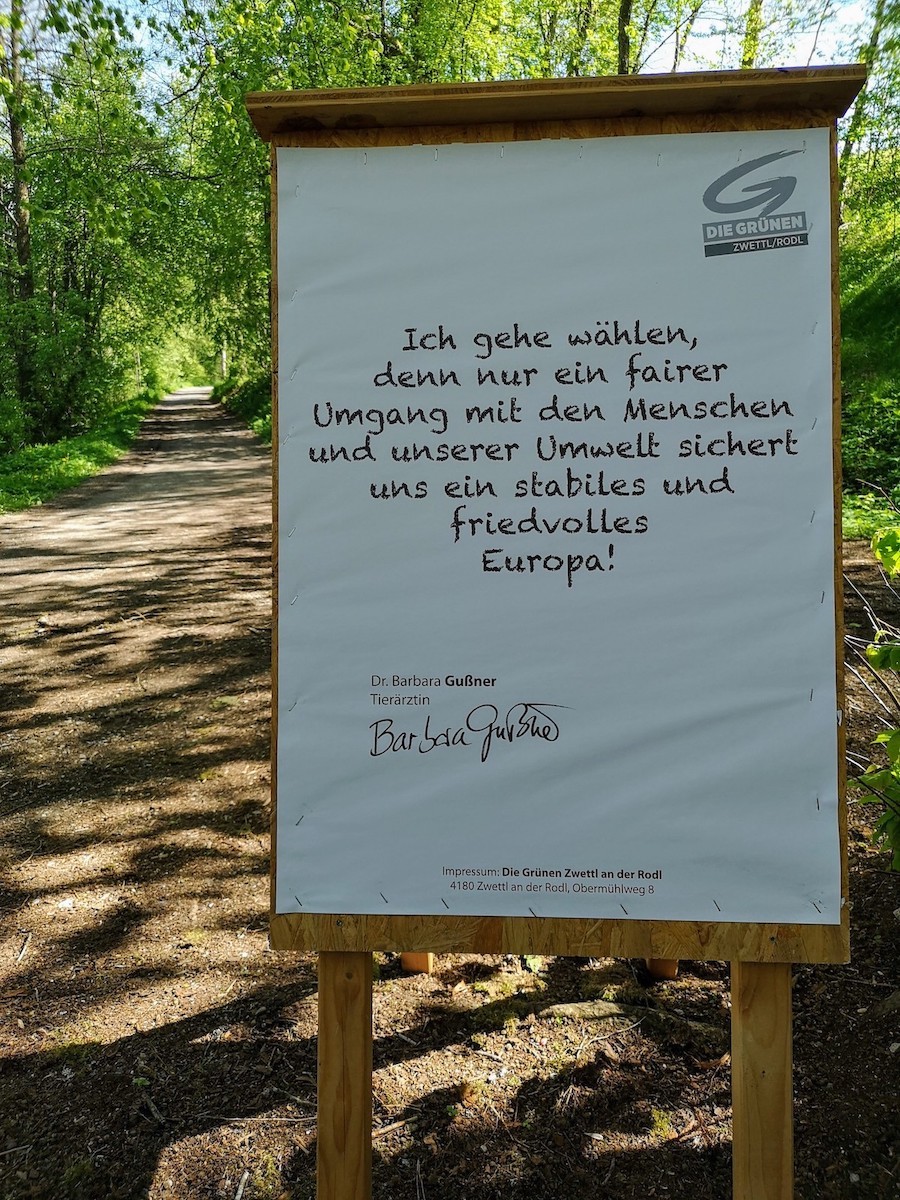 DIE GRÜNEN
ZWETTL/RODL
Ich gehe wählen,
denn nur ein fairer
Umgang mit den Menschen
und unserer Umwelt sichert
uns ein stabiles und
friedvolles
Europa!
Dr. Barbara Gußner
Tierärztin
Barbara Gußner
Impressum: Die Grünen Zwettl an der Rodl
4180 Zwettl an der Rodl, Obermühlweg 8